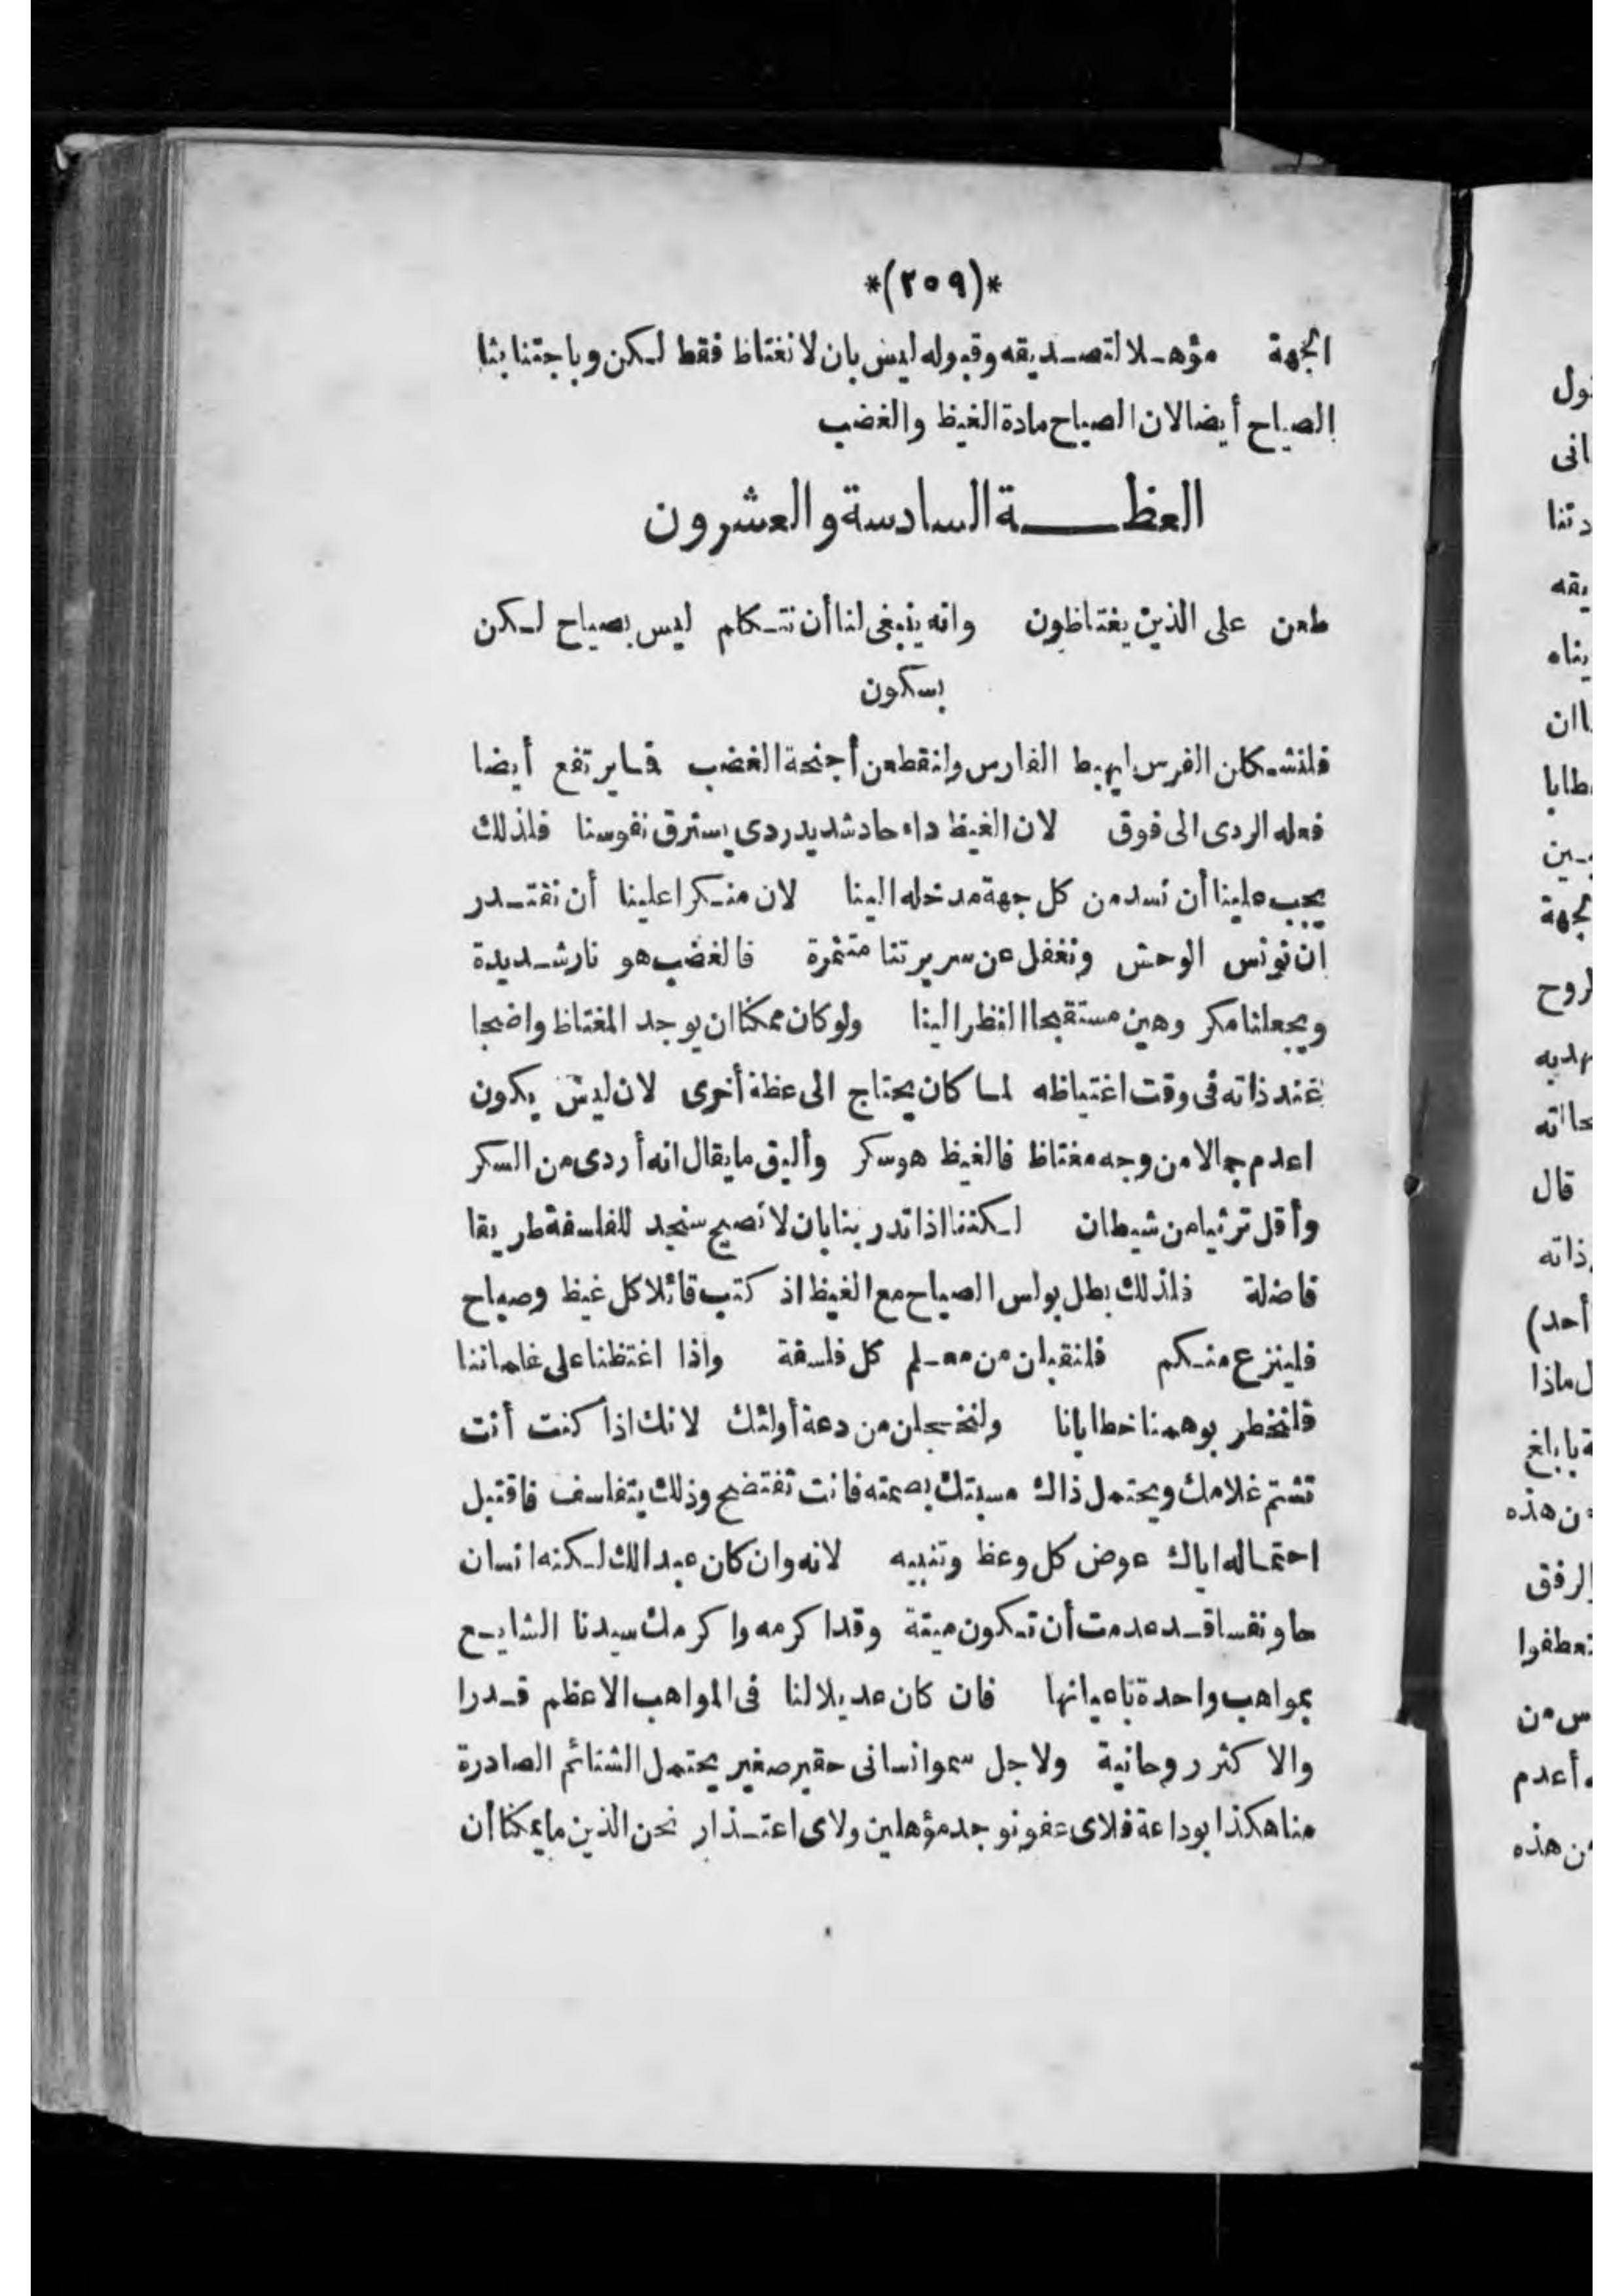 *(٢٥٩)*
الجهة مؤهلا لتصديقه وقبوله ليس بان لا نغتاظ فقط لكن وباجتنابنا
الصياح أيضا لان الصياح مادة الغيظ والغضب
العظة السادسة والعشرون
طعن على الذين يغتاظون وانه ينبغى لنا أن نتكلم ليس بصياح لكن
بسكون
فلنشكلن الفرس ليهبط الفارس ولنقطعن أجنحة الغضب فما يرتفع أيضا
فعله الردى الى فوق لان الغيظ داء حاد شديد ردى يسترق نفوسنا فلذلك
يجب علينا أن نسد من كل جهة مدخله الينا لان منكرا علينا أن نقتدر
ان نونس الوحش ونغفل عن سريرتنا متنمرة فالغضب هو نار شديدة
ويجعلنا مكروهين مستقبحا النظر الينا ولو كان ممكنا ان يوجد المغتاظ واضحا
عند ذاته فى وقت اغتياظه لما كان يحتاج الى عظة أخرى لان ليس يكون
اعدم جمالا من وجه مغتاظ فالغيظ هو سكر وأليق ما يقال انه أردى من السكر
وأقل ترثيا من شيطان لكننا اذا تدربنا بان لا نصيح سنجد للفلسفة طريقا
فاضلة فلذلك بطل بولس الصياح مع الغيظ اذ كتب قائلا كل غيظ وصياح
فلينزع منكم فلنقبلن من معلم كل فلسفة واذا اغتظنا على غلماننا
فلنخطر بوهمنا خطايانا ولنخجلن من دعة أولئك لانك اذا كنت أنت
تشتم غلامك ويحتمل ذاك مسبتك بصمته فانت تفتضح وذلك يتفلسف فاقتبل
احتماله اياك عوض كل وعظ وتنبيه لانه وان كان عبدا لك لكنه انسان
حاو نفسا قد عدمت أن تكون ميتة وقد اكرمه واكرمك سيدنا الشايع
بمواهب واحدة باعيانها فان كان عديلا لنا فى المواهب الاعظم قدرا
والاكثر روحانية ولاجل سمو انسانى حقير صغير يحتمل الشتائم الصادرة
منا هكذا بوداعة فلاى عفو نوجد مؤهلين ولاى اعتذار نحن الذين ما يمكنا أن